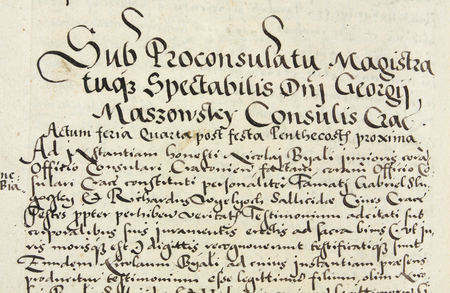 Sub Proconsulatu Magistra
tuq₃ Spectabilis Dnj Georgij
Maszowsky Consulis Crac
Actum feria Quarta post festa Penthecosth proxima.
Ad Instantiam honesti Nicolaj Byali junioris corā
Officio Consulari Cracovieñ factam coram Officio Co
sulari Crac constituti personaliter Famati Gabriel
et Richardus Cives Crac
Testes ppter perhiben veritatis Testimonium adcitati sub
corporalibus suis juramentis erectis ad sacra
ris morisque est digittis recognoverunt testificatiq₃ sunt
Eundem Nicolaum Byali ad cuius instantiam præsens
producitur testimonium esse legittimum filium, olim